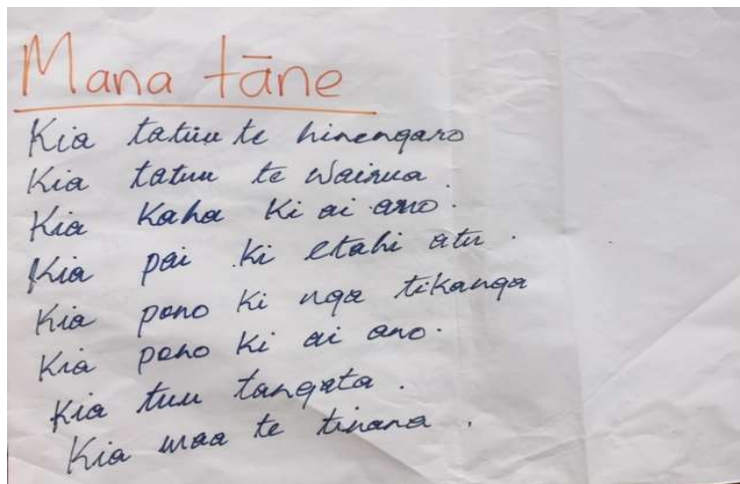 Mana tāne
Kia tatuu te hinengaro
Kia tatuu te wairua.
Kia Kaha Ki ai ano.
Kia pai ki etahi atu.
Kia pono ki nga tikanga
Kia pono ki ai ano.
Kia tuu tangata.
Kia maa te tinana.